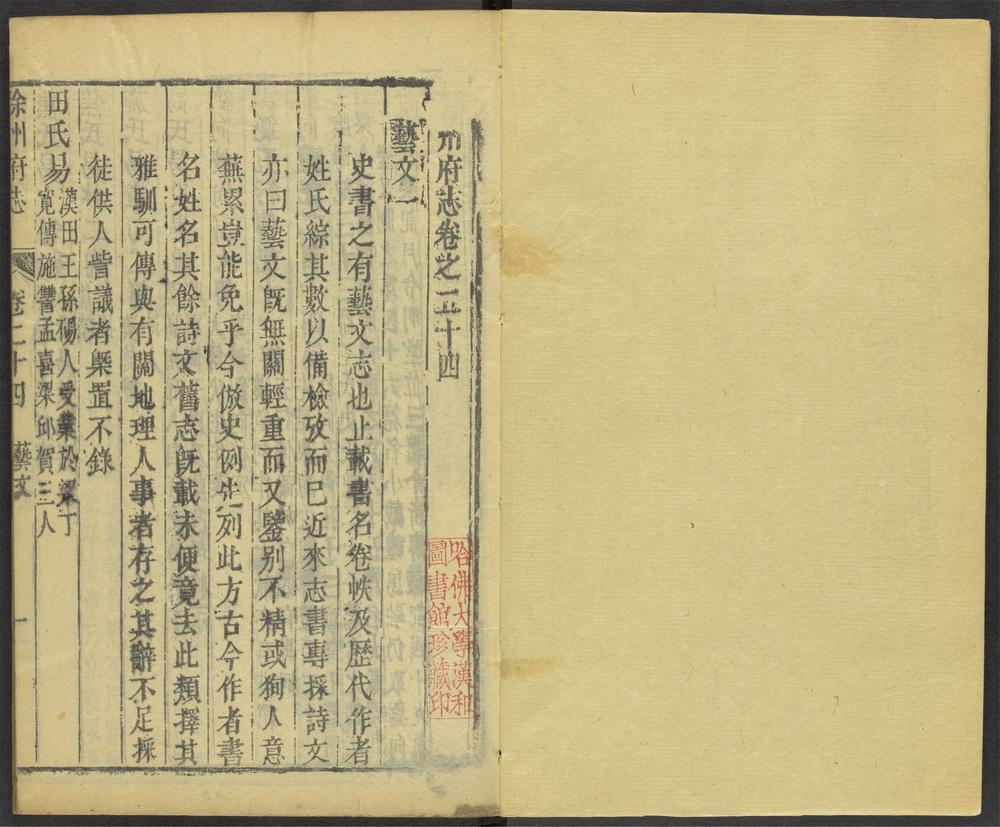 州府志卷之二十四
藝文一
史書之有藝文志也止載書名卷帙及歷代作者
姓氏綜其數以備檢攷而已近來志書專採詩文
亦曰藝文旣無關輕重而又鑒别不精或狥人意
蕪累豈能免乎今倣史例先列此方古今作者書
名姓名其餘詩文舊志旣載未便竟去此類擇其
雅馴可傳與有關地理人事者存之其辭不足採
徒供人訾議者槩置不錄
田氏易
漢田王孫碭人受業於梁丁
寬傳施讐孟喜梁邱賀三人
徐州府志
卷二十四
藝文
一
哈佛大學漢和
圖書館珍藏印